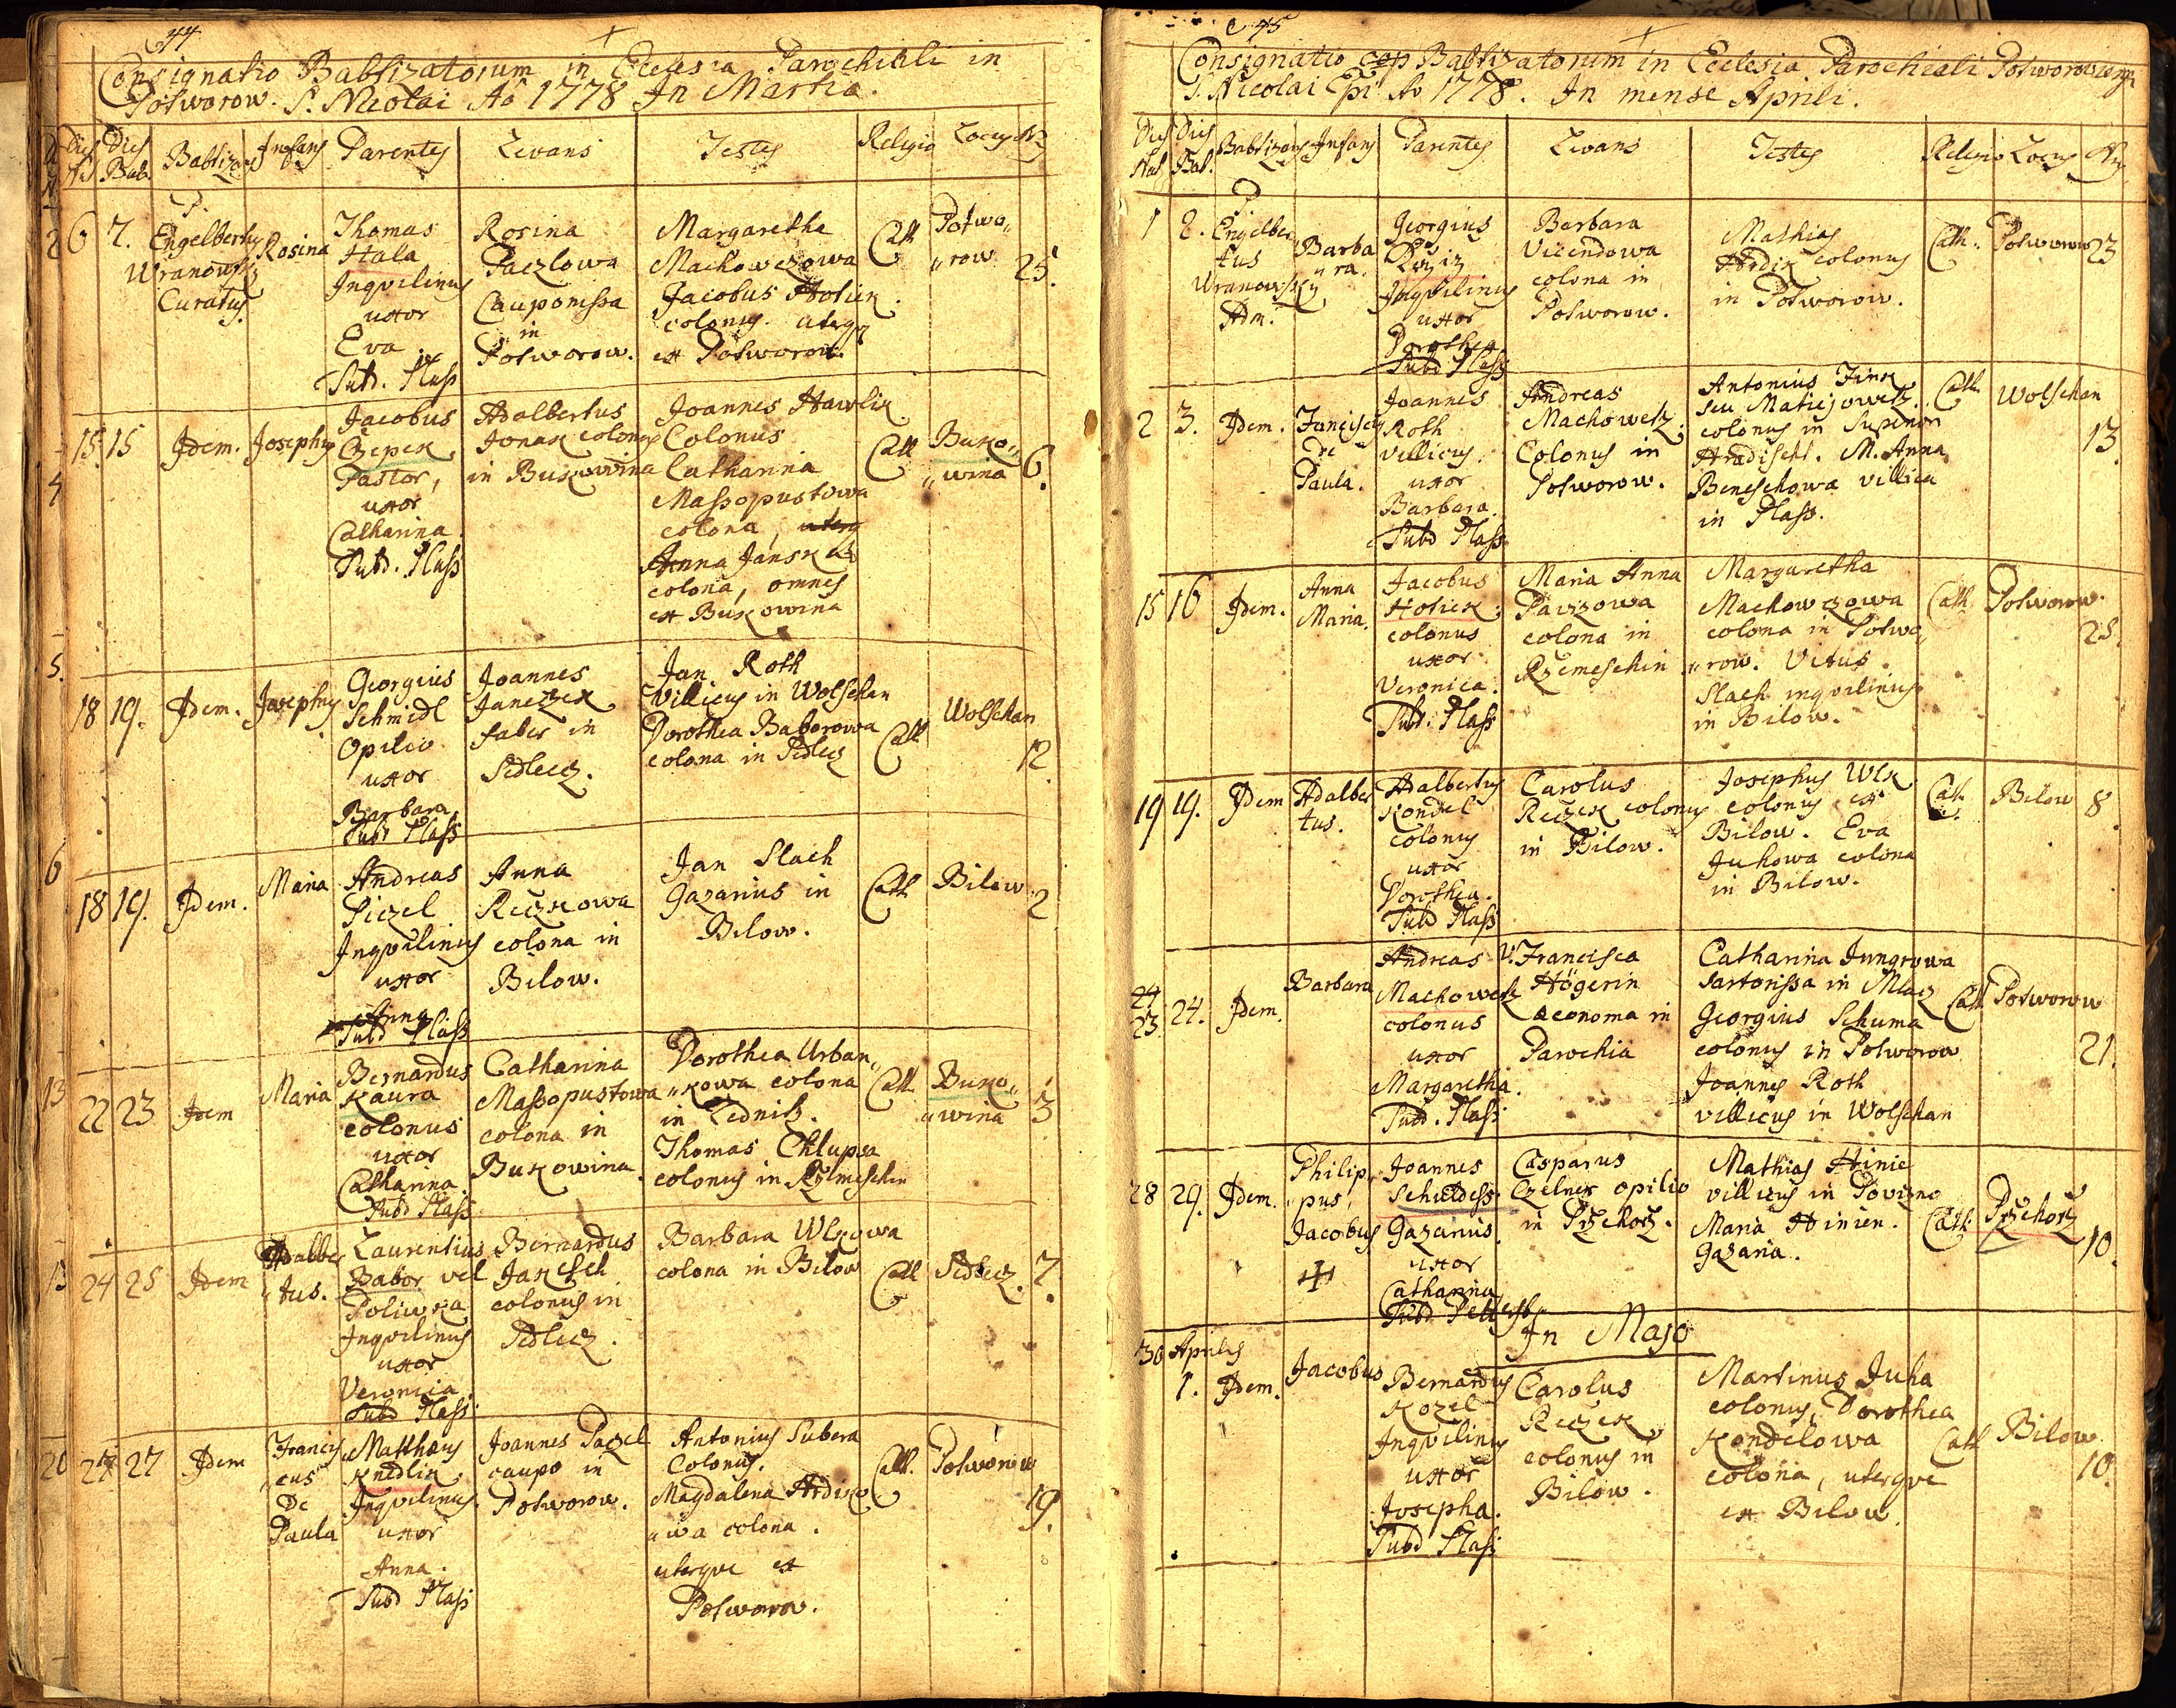 44
Consignatio Babtizatorum in Ecclesia Parochiali in
Potworow. S. Nicolai Ao 1778 In Martio.
Dies N
Dies Bab.
Babtizans
Infans
Parentes
Levans
Testes
Religio
Locus
Nr
6
7.
P.
Engelbertus
Wranowsky
Curatus.
Rosina
Thomas
Hala
Inqvilinus
uxor
Eva
Subd. Plass
Rosina
Paczlowa
Cauponissa
in
Potworow.
Margaretha
Machowczowa
Jacobus Hotien
colonus. uterq
ex Potworow.
Cath
Potwo„
„row
25.
15
15
Idem.
Josephus
Jacobus
Czepek
Pastor,
uxor
Catharina.
Subd. Plass
Adalbertus
Jonak colonus
in Bukowina
Joannes Hawlik
Colonus
Catharina
Massopustowa
colona, uterq
Anna Jansk
colona, omnes
ex Bukowina
Cath
Buko„
„wina
6.
18
19.
Idem.
Josephus
Georgius
Schmidl
Opilio
uxor
Barbara
Subd Plass
Joannes
Janeczek
faber in
Sedlecz.
Jan Roth
Villicus in Wolschan
Dorothea Baborowa
colona in Sedlecz
Cath
Wolschan
12.
18
19.
Idem.
Maria
Andreas
Siczel
Inqvilinus
uxor
Anna
Subd Plass
Anna
Reczkowa
colona in
Bilow.
Jan Slach
Gazarius in
Bilow.
Cath
Bilow.
2
22
23
Idem
Maria
Bernardus
Kaura
colonus
uxor
Catharina.
Subd Plass
Catharina
Massopustowa
colona in
Bukowina
Dorothea Urban„
„kowa colona
in Lednitz.
Thomas Chlupsa
colonus in Rzemeschin
Cath
Buko„
„wina
3
24
25
Idem
Adalber
„tus.
Laurentius
Babor vel
Poliwka
Inqvilinus
uxor
Veronica.
Subd Plass
Bernardus
Jaresch
colonus in
Sedlecz.
Barbara Wlkowa
colona in Bilow
Cath
Sedlecz.
7.
27
27
Idem
Francis
„cus
De
Paula
Matthæus
Knedlik
Inqvilinus.
uxor
Anna.
Subd Plass
Joannes Paczel
caupo in
Potworow.
Antonius Subera
Colonus.
Magdalena Hrdizo
„wa colona.
uterqve ex
Potworow.
Cath.
Potworow
19.
45
Consignatio Babtizatorum in Ecclesia Parochiali
S. Nicolai Epi Ao 1778. In mense Aprili.
Dies Nat
Dies Bab.
Babtizans
Infans
Parentes
Levans
Testes
Religio
Locus
Nr
1
2.
P.
Engelber
tus
Wranowsky
Adm.
Barba
„ra.
Georgius
Inqvilinus
uxor
Dorothea
Subd Plass
Barbara
Vicendowa
colona in
Potworow.
Mathias
Hrdik colonus
in Potworow.
Cath.
Potworow
23
2
3.
Idem.
Franciscus
De
Paula.
Joannes
Roth
villicus.
uxor
Barbara.
Subd Plass
Andreas
Machowetz.
Colonus in
Potworow.
Antonius Fink
seu Matiejowetz.
colonus in Superiori
Hradischt. M. Anna
Beneschowa villica
in Plass.
Cath
Wolschan
13.
15
16
Idem.
Anna
Maria.
Jacobus
Hotien.
colonus
uxor
Veronica.
Subd. Plass
Maria Anna
Pavizowa
colona in
Rzemeschin
Margaretha
Machowczowa
colona in Potwo
„row. Vitus
Slach inqvilinus
in Bilow.
Cath.
Potworow.
25.
19
19.
Idem
Adalber
tus.
Adalbertus
Kondel
colonus
uxor
Dorothea.
Subd Plass
Carolus
Reczek colonus
in Bilow.
Josephus Wlk
colonus ex
Bilow. Eva
Juhowa colona
in Bilow.
Cath.
Bilow
8.
24
23.
24.
Idem.
Barbara
Andreas
Machowetz
colonus
uxor
Margaretha.
Subd. Plass
V. Francisca
Högerin
œconoma in
Parochia
Catharina Jungrowa
sartorissa in Mlacz
Georgius Schuma
colonus in Potworow
Joannes Roth
villicus in Wolschan
Cath
Potworow
21.
28
29.
Idem.
Philip„
„pus,
Jacobus
Joannes
Schuldess.
Gazarius.
uxor
Catharina
Subd
Casparus
Czelner opilio
in Przehorz.
Mathias Hinie
villicus in Powizno
Maria Hinien.
Gazaria.
Cath.
Przehorz
10.
In Majo
30 Aprilis
1.
Idem.
Jacobus
Bernardus
Kozel
Inqvilinus
uxor
Josepha.
Subd Plass
Carolus
Reczek
colonus in
Bilow.
Martinus Juha
colonus, Dorothea
Kondelowa
colona, uterqve
ex Bilow.
Cath
Bilow.
10.